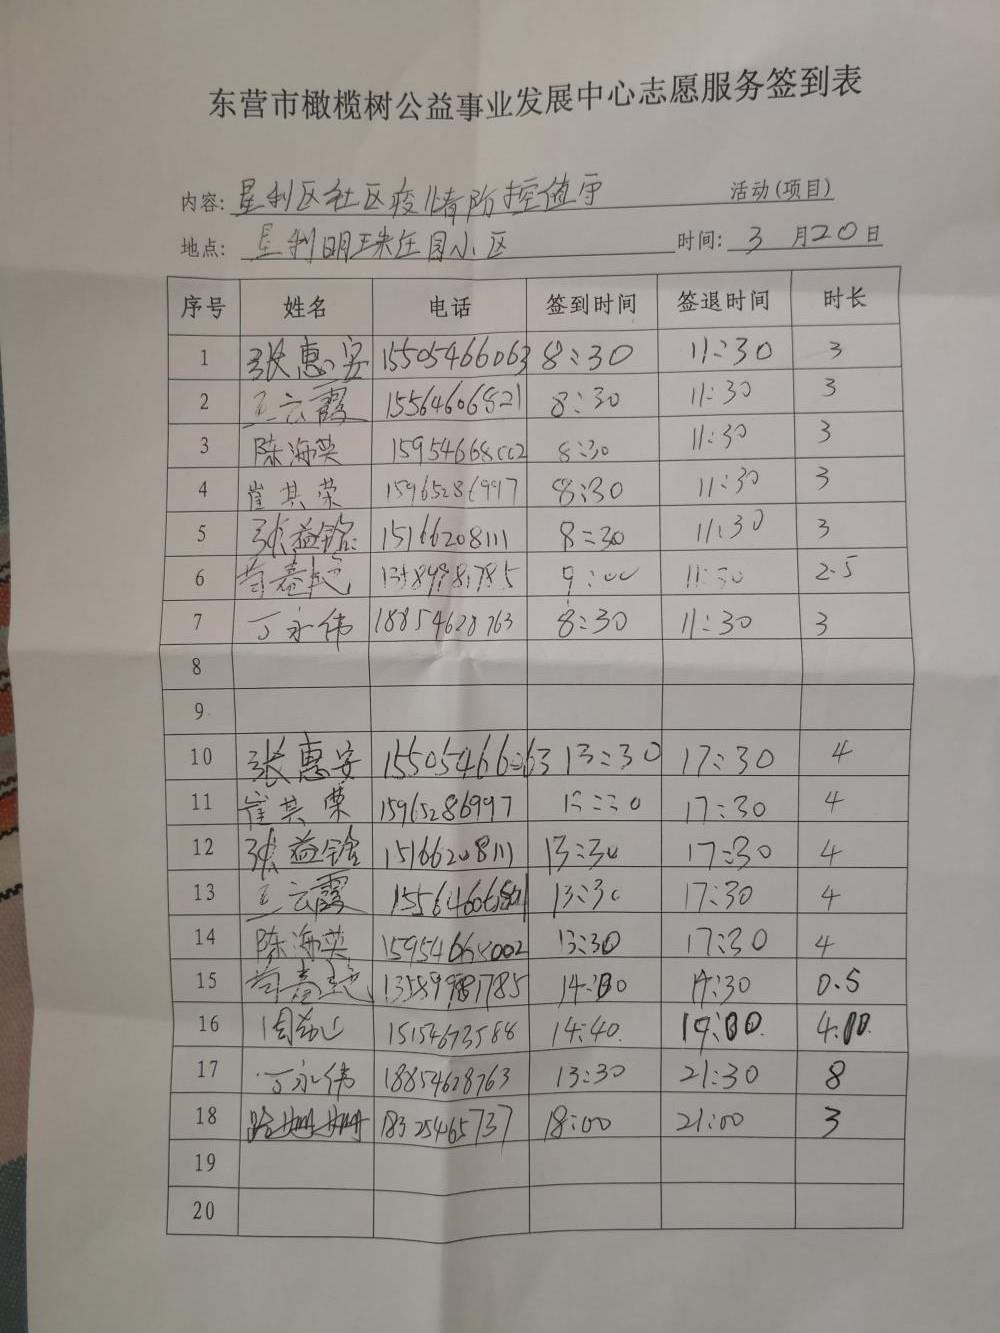 东营市橄榄树公益事业发展中心志愿服务签到表
内容: 垦利区社区疫情防控值守 活动(项目)
地点: 垦利明珠庄园小区 时间: 3 月20日
序号 姓名 电话 签到时间 签退时间 时长
1 张惠安 15505466063 8:30 11:30 3
2 王云霞 15564606821 8:30 11:30 3
3 陈海英 15954668002 8:30 11:30 3
4 崔其荣 15965286997 8:30 11:30 3
5 张益铭 15166208111 8:30 11:30 3
6 13589981785 9:00 11:30 2.5
7 丁永伟 18854628763 8:30 11:30 3
8
9
10 张惠安 15505466063 13:30 17:30 4
11 崔其荣 15965286997 13:30 17:30 4
12 张益铭 15166208111 13:30 17:30 4
13 王云霞 15564606821 13:30 17:30 4
14 陈海英 15954668002 13:30 17:30 4
15 13589981785 14:00 14:30 0.5
16 15154673588 14:40. 19:00. 4.10.
17 丁永伟 18854628763 13:30 21:30 8
18 路姗姗 18325465737 18:00 21:00 3
19
20